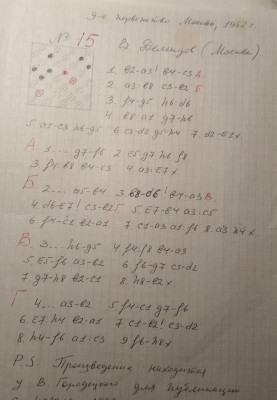 9-е первенство Москвы, 1962 г.
№ 15 В Демидов (Москва)
1. b2-a3! b4-c3 А
2. a3:b8 c3-b2 Б
3. f4-g5 h6:d6
4. b8 a1 g7-h6
5. a1-c3 h6-g5 6. c3-d2 g5-h4 7. d2-e1x
А 1.... g7-f6 2 e5 g7 h6 f8
3 f4:b8 b4-c3 4 a3:e7x
Б 2.... a5-b4 3 b8-d6! b4-a3 В
4. d6-e7! c3-b2 Г 5 e7-b4 a3:c5
6. f4-c1 b2-a1 7. c1-a3 a1-f6 8. a3 h4x
В. 3... h6-g5 4 f4:f8 b4-a3
5. e5-f6 a3-b2 6 f6-g7 c3-d2
7 g7-h8 b2-c1 8. h8-b2x
Г 4... a3-b2 5 f4-c1 g7-f6
6. e7:h4 b2-a1 7 c1-b2! c3-d2
8. h4-f6 a1:c3 9 f6-h8x
P.S. Произведение находится
у В Городецкого для публикации